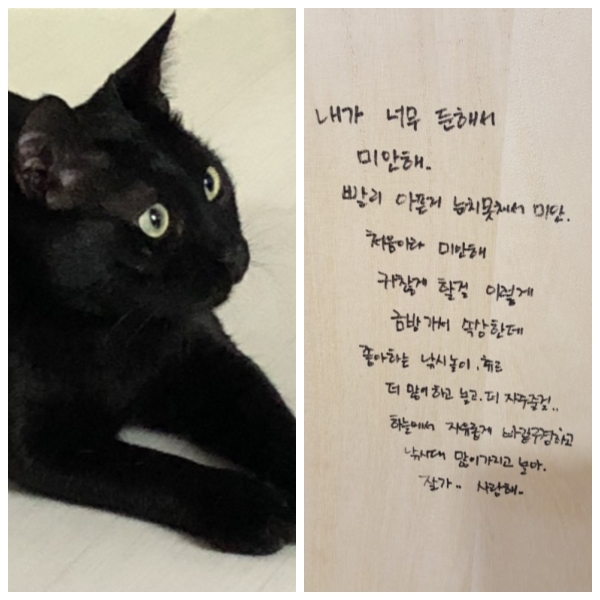 내가 너무 둔해서
미안해.
빨리 아픈지 눈치못채서 미안.
처음이라 미안해
귀찮게 할걸 이렇게
금방 가서 속상한데
좋아하는 낚시놀이, 츄르
더 많이 하고 놀고, 더 자주줄걸..
하늘에서 자유롭게 바깥구경하고
낚시대 많이가지고 놀아.
잘가.. 사랑해..